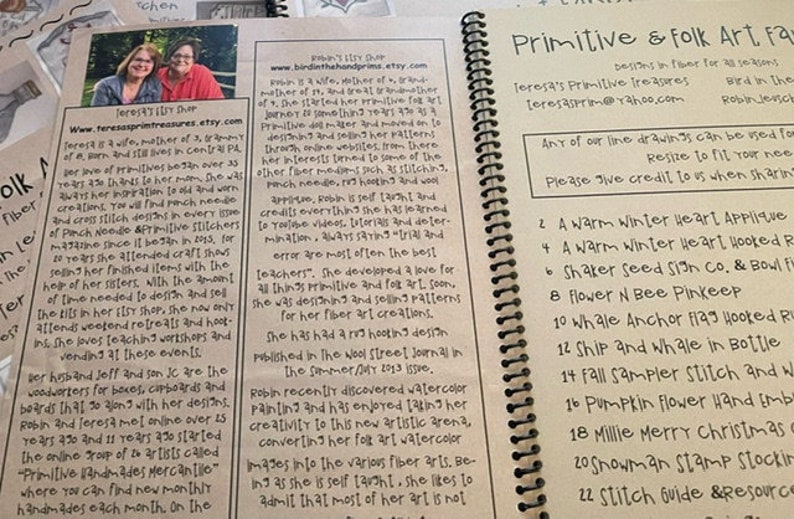 Teresa's Etsy Shop
www.teresasprimtreasures.etsy.com
Teresa is a wife, mother of 3, Grammy
of 8. Born and still lives in Central PA.
Her love of Primitives began over 35
years ago thanks to her mom. She was
always her inspiration to old and worn
creations. You will find punch needle
and cross stitch designs in every issue
of Punch Needle & Primitive Stitchers
magazine since it began in 2015. For
20 years she attended craft shows
selling her finished items with the
help of her sisters. With the amount
of time needed to design and sell
the kits in her Etsy shop, she now only
attends weekend retreats and hook-
ins. She loves teaching workshops and
vending at these events.
Her husband Jeff and son JC are the
woodworkers for boxes, cupboards and
boards that go along with her designs.
Robin and Teresa met online over 25
years ago and 11 years ago started
the online group of 26 artists called
"Primitive Handmades Mercantile"
where you can find new monthly
handmades each month. On the
Robin's Etsy Shop
www.birdinthehandprims.etsy.com
Robin is a wife, mother of 4, grand-
mother of 14, and great grandmother
of 4. She started her primitive folk art
journey 20 something years ago as a
primitive doll maker and moved on to
designing and selling her patterns
through online websites. From there
her interests turned to some of the
other fiber mediums such as stitching,
punch needle, rug hooking and wool
applique. Robin is self taught and
credits everything she has learned
to YouTube videos, tutorials and deter-
mination, always saying "trial and
error are most often the best
teachers". She developed a love for
all things primitive and folk art soon,
she was designing and selling patterns
for her fiber art creations.
She has had a rug hooking design
published in The Wool Street Journal in
the Summer/July 2013 issue.
Robin recently discovered watercolor
painting and has enjoyed taking her
creativity to this new artistic arena,
converting her folk art watercolor
images into the various fiber arts. Be-
ing as she is self taught, she likes to
admit that most of her art is not
Primitive & Folk Art Fa
Designs in fiber for all seasons
Teresa's Primitive Treasures Bird in the
teresasprim@yahoo.com Robin_leusch
Any of our line drawings can be used for
Resize to fit your nee
Please give credit to us when sharin
2 A Warm Winter Heart Applique
4 A Warm Winter Heart Hooked R
6 Shaker Seed Sign Co. & Bowl Fi
8 Flower N Bee Pinkeep
10 Whale Anchor Flag Hooked Ru
12 Ship and Whale in Bottle
14 Fall Sampler Stitch and W
16 Pumpkin Flower Hand Emb
18 Millie Merry Christmas
20 Snowman Stamp Stockin
22 Stitch Guide & Resource